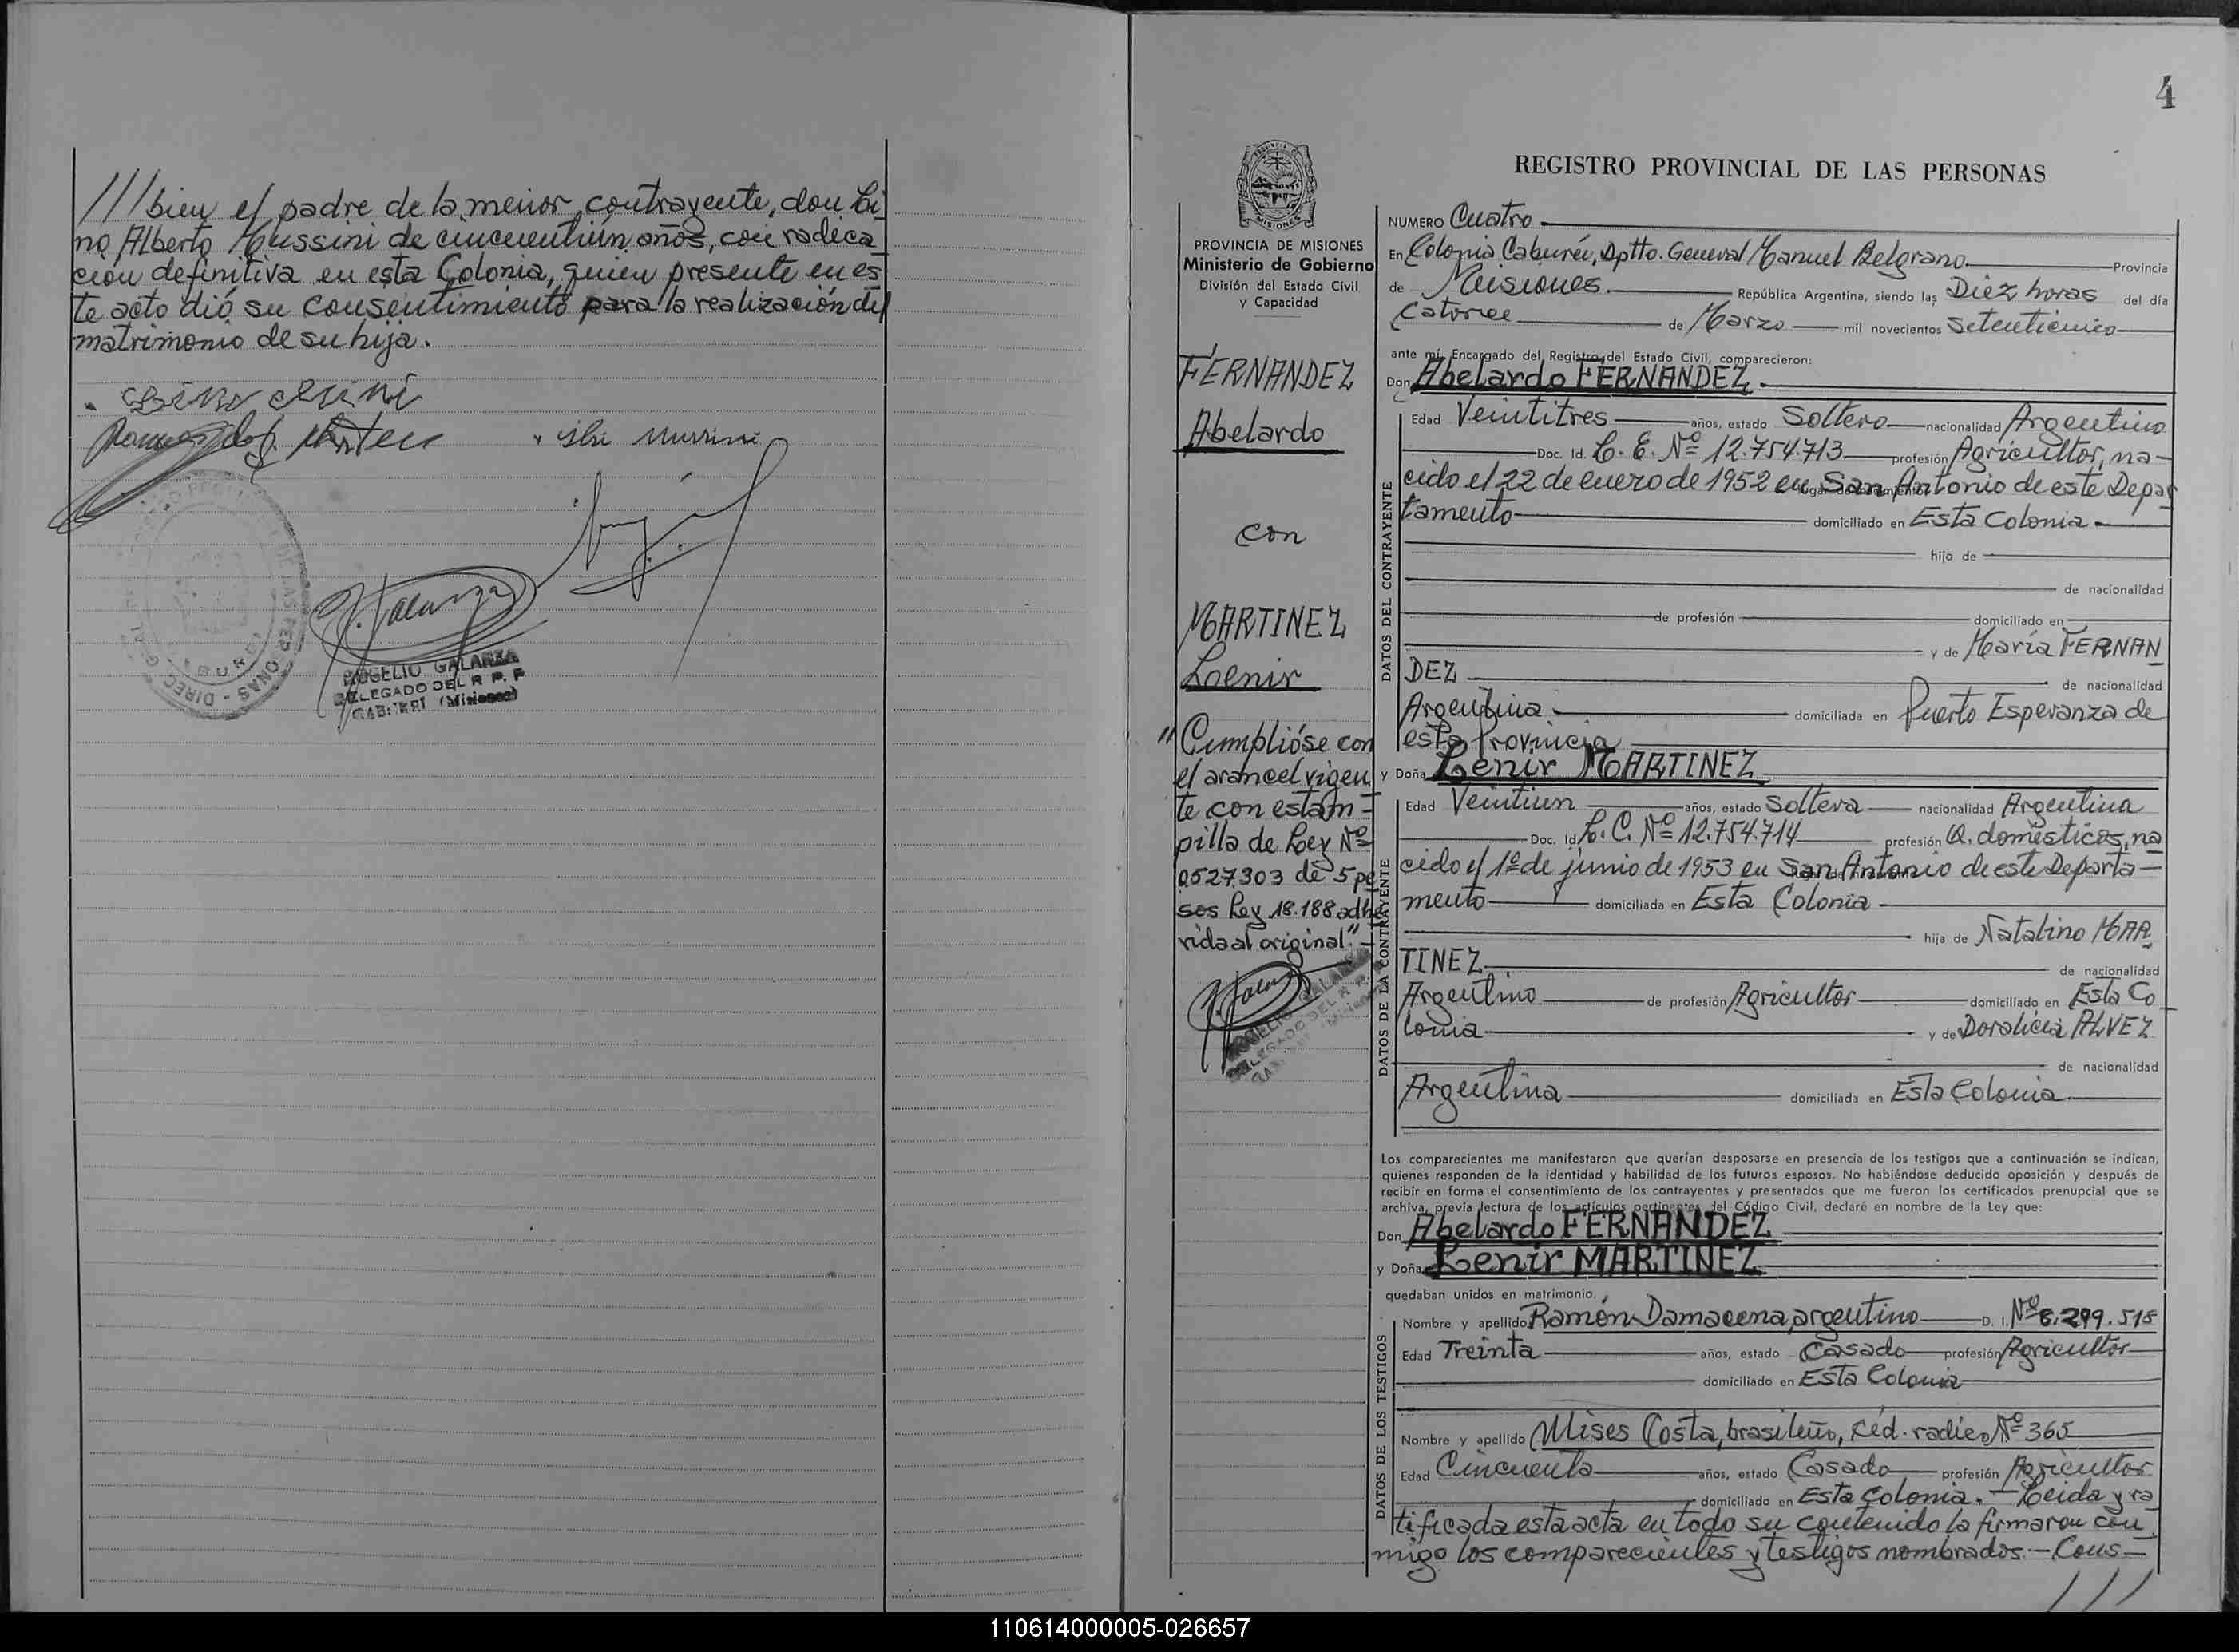 ///bien el padre de la menor contrayente, don Li
no Alberto Mussini de cincuentiún años, con radica
ción definitiva en esta Colonia, quien presente en es
te acto dió su consentimiento para la realización del
matrimonio de su hija.
ROGELIO GALARZA
DELEGADO DEL R. P. P
CABUREI (Misiones)
4
PROVINCIA DE MISIONES
Ministerio de Gobierno
División del Estado Civil
y Capacidad
FERNANDEZ
Abelardo
con
MARTINEZ
Lenir
"Cumplióse con
el arancel vigen
te con estam-
pilla de Ley Nº
0527303 de 5 pe
sos Ley 18.188 adhe
rida al original".-
ROGELIO GALARZA
DELEGADO DEL R. P.
REGISTRO PROVINCIAL DE LAS PERSONAS
NUMERO Cuatro
En Colonia Caburéi, Dptto. General Manuel Belgrano Provincia
de Misiones. República Argentina, siendo las Diez horas del día
Catorce de Marzo mil novecientos Setenticinco
ante mí, Encargado del Registro del Estado Civil, comparecieron:
Don Abelardo FERNANDEZ.
DATOS DEL CONTRAYENTE
Edad Veintitres años, estado Soltero nacionalidad Argentino
Doc. Id. L. E. Nº 12.754.713 profesión Agricultor, na-
cido el 22 de enero de 1952 en San Antonio de este Depar
tamento domiciliado en Esta Colonia.
hijo de
de nacionalidad
de profesión domiciliado en
y de María FERNAN
DEZ de nacionalidad
Argentina. domiciliada en Puerto Esperanza de
esta Provincia
y Doña Lenir MARTINEZ
DATOS DE LA CONTRAYENTE
Edad Veintiun años, estado Soltera nacionalidad Argentina
Doc. Id L. C. Nº 12.754.714 profesión Q. domésticos, na
cido el 1º de junio de 1953 en San Antonio de este Departa-
mento domiciliada en Esta Colonia
hija de Natalino MAR
TINEZ de nacionalidad
Argentino de profesión Agricultor domiciliado en Esta Co
lonia y de Doralicia ALVEZ
de nacionalidad
Argentina domiciliada en Esta Colonia
Los comparecientes me manifestaron que querían desposarse en presencia de los testigos que a continuación se indican,
quienes responden de la identidad y habilidad de los futuros esposos. No habiéndose deducido oposición y después de
recibir en forma el consentimiento de los contrayentes y presentados que me fueron los certificados prenupcial que se
archiva, previa lectura de los artículos pertinentes del Código Civil, declaré en nombre de la Ley que:
Don Abelardo FERNANDEZ
y Doña Lenir MARTINEZ
quedaban unidos en matrimonio.
DATOS DE LOS TESTIGOS
Nombre y apellido Ramón Damacena, argentino D. I. Nº 8.299.518
Edad Treinta años, estado Casado profesión Agricultor
domiciliado en Esta Colonia
Nombre y apellido Mises Costa, brasileño, Céd. radic. Nº 365
Edad Cincuenta años, estado Casado profesión Agricultor
domiciliado en Esta Colonia.- Leida y ra
tificada esta acta en todo su contenido la firmaron con
migo los comparecientes y testigos nombrados.- Cons-
///
110614000005-026657